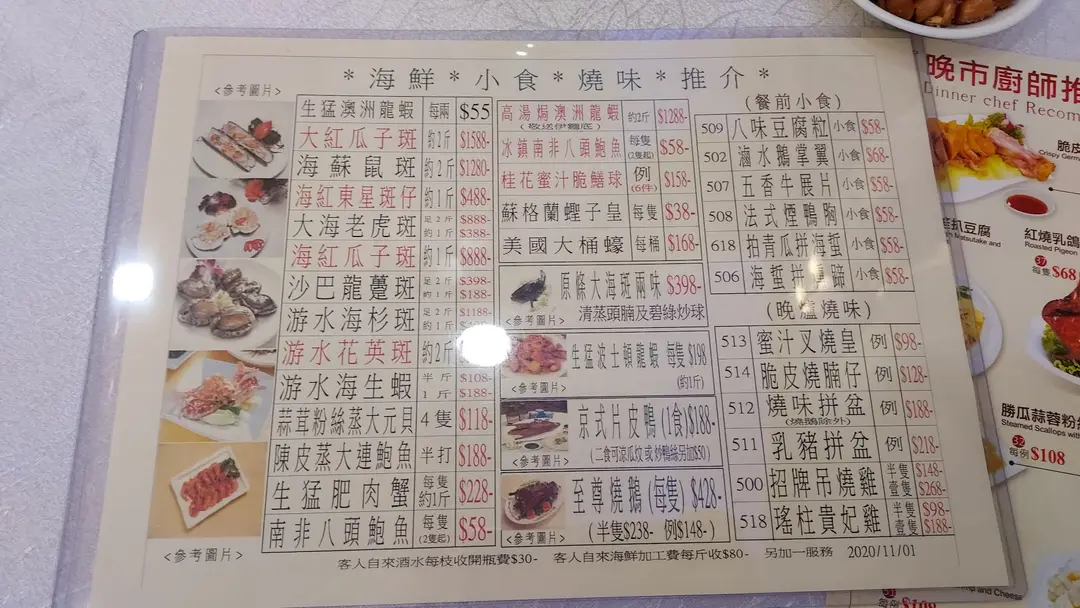 *海鮮*小食*燒味*推介*
<參考圖片>
生猛澳洲龍蝦 每兩 $55
大紅瓜子斑 約2斤 $1588-
海蘇鼠斑 約2斤 $1280-
海紅東星斑仔 約1斤 $488-
大海老虎斑 足2斤 $888- 約1斤 $388-
海紅瓜子斑 約1斤 $888-
沙巴龍躉斑 足2斤 $398- 約1斤 $188-
游水海杉斑 足2斤 $1188- 約1斤
游水花英斑 約2斤
游水海生蝦 半斤 $108- 1斤 $188-
蒜茸粉絲蒸大元貝 4隻 $118-
陳皮蒸大連鮑魚 半打 $188-
生猛肥肉蟹 每隻約1斤 $228-
南非八頭鮑魚 每隻(2隻起) $58-
<參考圖片>
高湯焗澳洲龍蝦 (敬送伊麵底) 約2斤 $1288-
冰鎮南非八頭鮑魚 每隻(2隻起) $58-
桂花蜜汁脆鱔球 例(6件) $158-
蘇格蘭蟶子皇 每隻 $38-
美國大桶蠔 每桶 $168-
原條大海斑兩味 $398-
清蒸頭腩及碧綠炒球
<參考圖片>
生猛波士頓龍蝦 每隻 $198
(約1斤)
<參考圖片>
京式片皮鴨 (1食)$188-
(二食可涼瓜炆 或 炒鴨絲另加$50)
<參考圖片>
至尊燒鵝 (每隻) $428-
(半隻$238- 例$148-)
<參考圖片>
(餐前小食)
509 八味豆腐粒 小食 $58-
502 滷水鵝掌翼 小食 $68-
507 五香牛展片 小食 $58-
508 法式煙鴨胸 小食 $58-
618 拍青瓜拼海蜇 小食 $58-
506 海蜇拼 蹄 小食 $58-
(晚爐燒味)
513 蜜汁叉燒皇 例 $98-
514 脆皮燒腩仔 例 $128-
512 燒味拼盆 (燒鵝除外) 例 $188-
511 乳豬拼盆 例 $218-
500 招牌吊燒雞 半隻 $148- 壹隻 $268-
518 瑤柱貴妃雞 半隻 $98- 壹隻 $188-
客人自來酒水每枝收開瓶費$30- 客人自來海鮮加工費每斤收$80- 另加一服務 2020/11/01
晚市廚師推
Dinner chef Recom
脆皮
Crispy Germa
扒豆腐
Matsutake and
紅燒乳鴿
Roasted Pigeon
37
每隻 $68
勝瓜蒜蓉粉絲
Steamed Scallops with
32
每例 $108
and Cheese